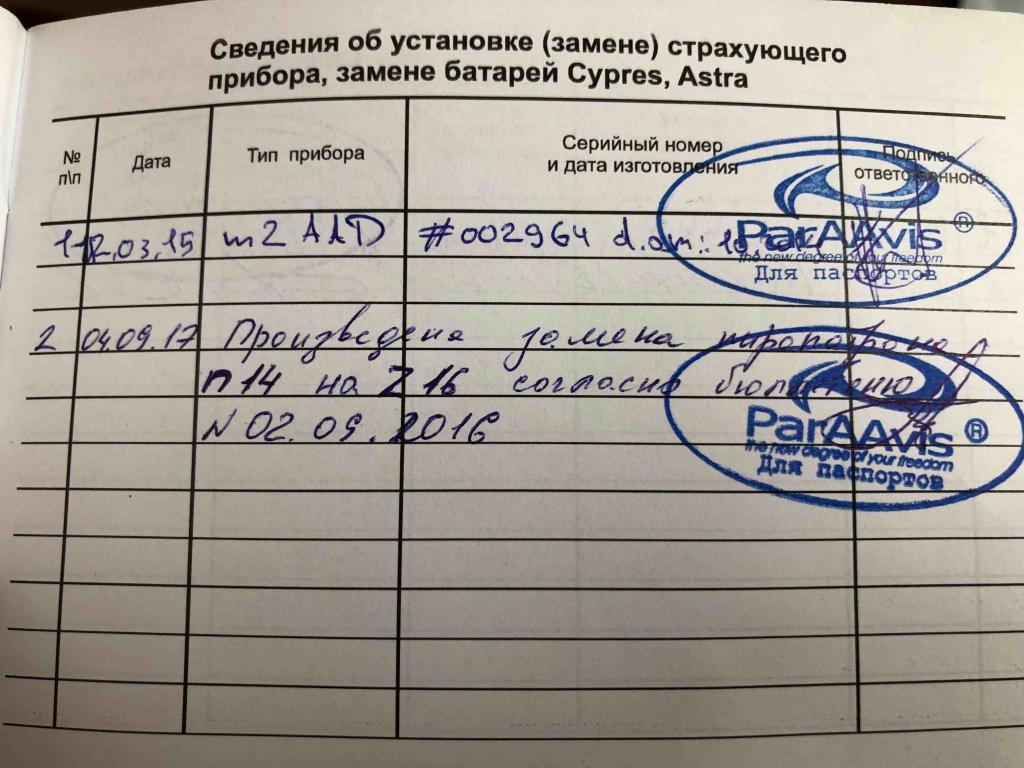 Сведения об установке (замене) страхующего
прибора, замене батарей Cypres, Astra
№ п\п Дата Тип прибора Серийный номер и дата изготовления Подпись ответственного
1 12.03.15 m2 AAD #002964 d.om.:
ParAAvis ®
the new degree of your freedom
Для паспортов
2 04.09.17 Произведена замена пиропатрона
П14 на Z16 согласно бюллетеню
N 02.09.2016
ParAAvis ®
the new degree of your freedom
Для паспортов